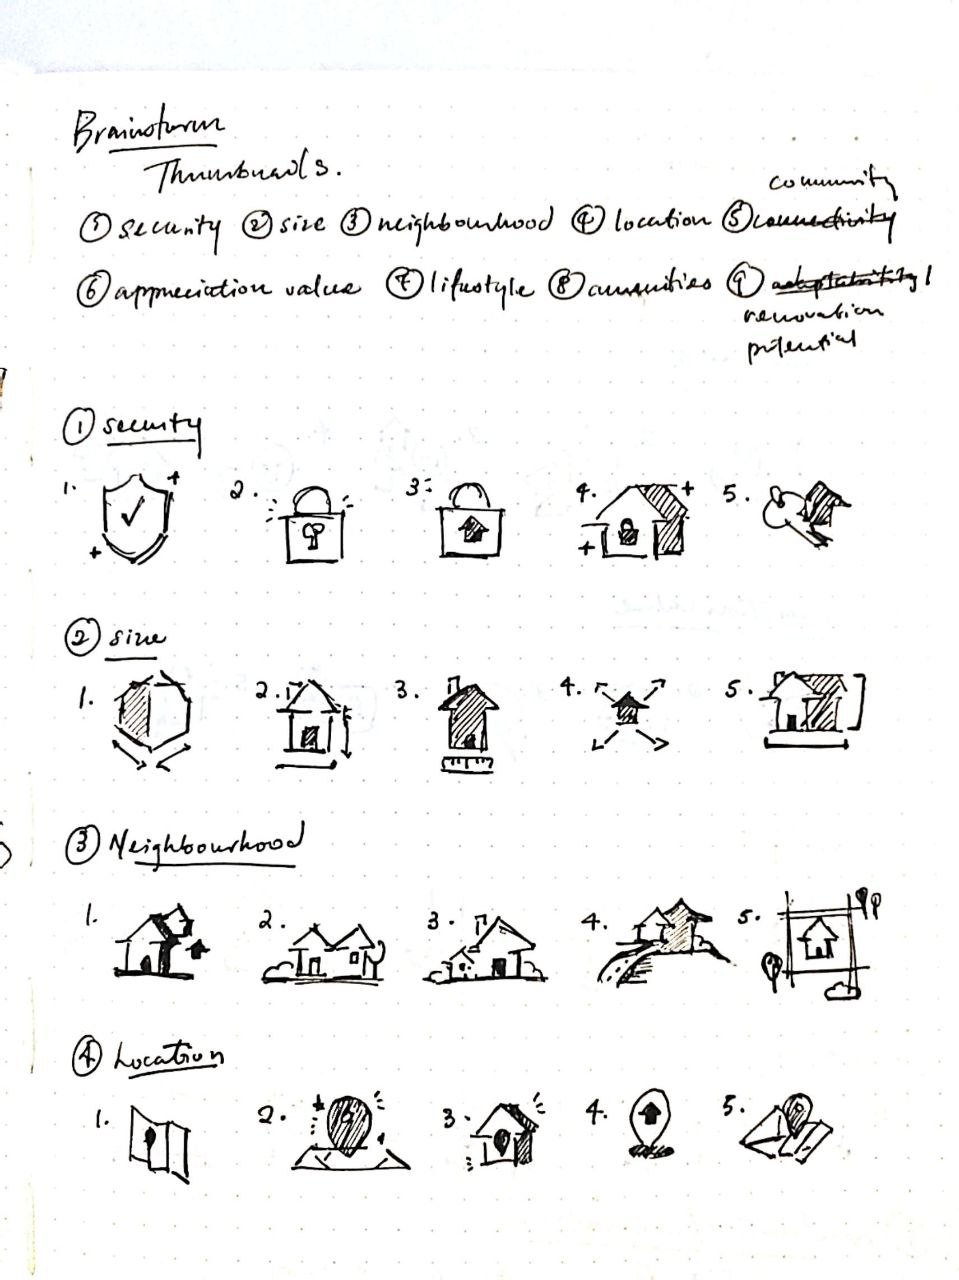 Brainstorm
Thumbnails.
community
① security ② size ③ neighbourhood ④ location ⑤ connectivity
⑥ appreciation value ⑦ lifestyle ⑧ amenities ⑨ adaptability /
renovation
potential
① security
1. 2. 3. 4. 5.
② size
1. 2. 3. 4. 5.
③ Neighbourhood
1. 2. 3. 4. 5.
④ Location
1. 2. 3. 4. 5.